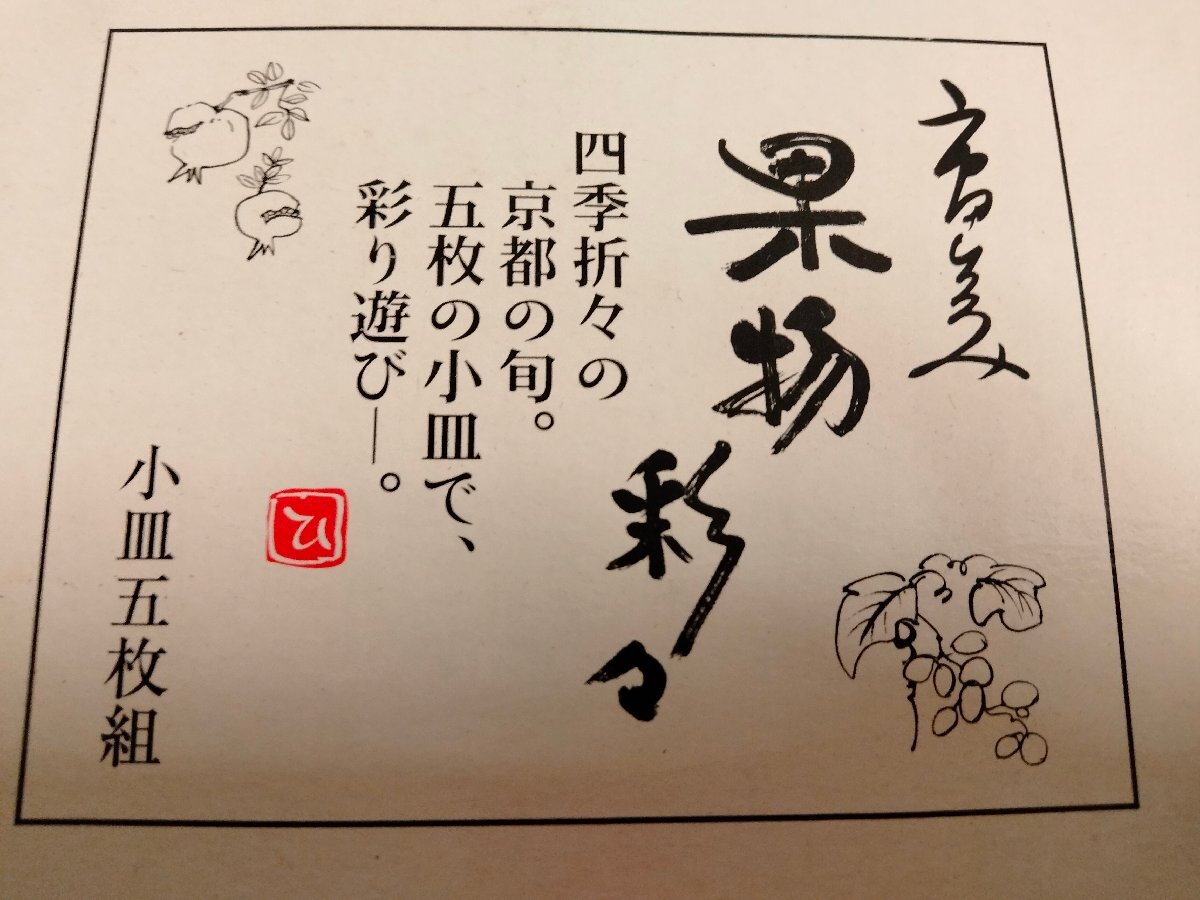 果物彩々
四季折々の
京都の旬。
五枚の小皿で、
彩り遊び―。
ひ
小皿五枚組